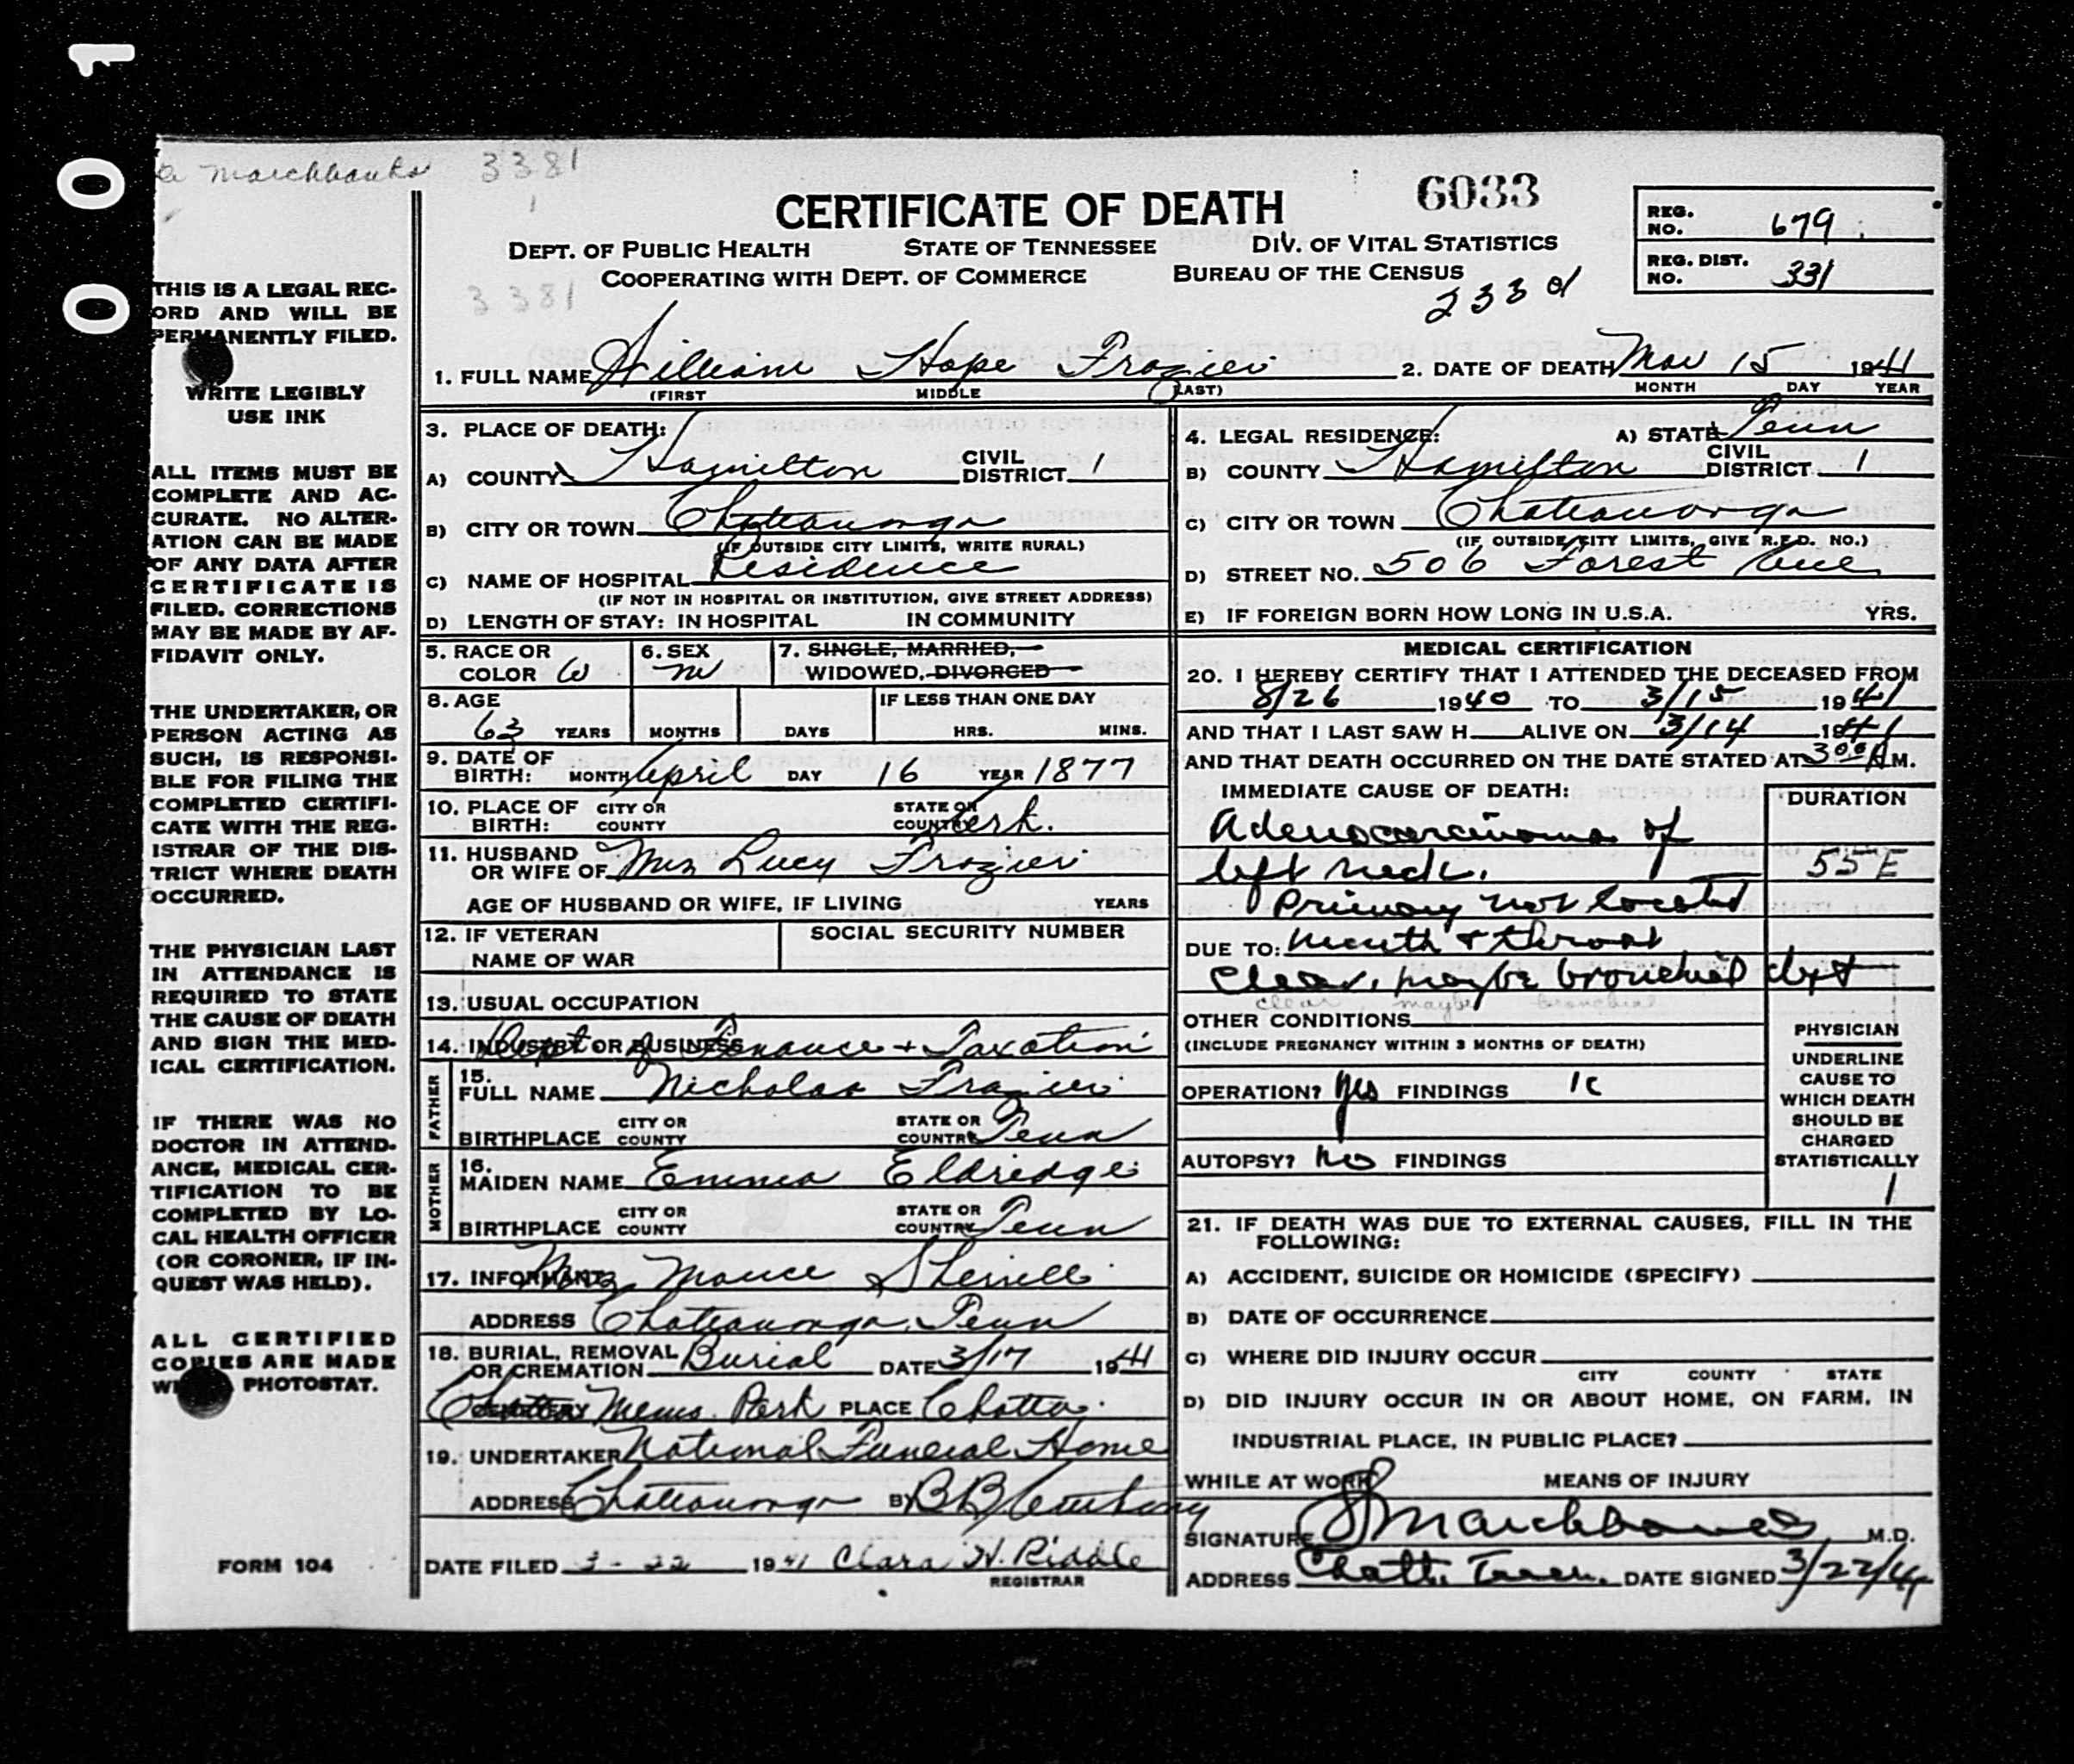 0 0 1
Marchbanks 3381
6033
CERTIFICATE OF DEATH
DEPT. OF PUBLIC HEALTH STATE OF TENNESSEE DIV. OF VITAL STATISTICS
COOPERATING WITH DEPT. OF COMMERCE BUREAU OF THE CENSUS
3381
REG. NO. 679
REG. DIST. NO. 331
THIS IS A LEGAL REC-
ORD AND WILL BE
PERMANENTLY FILED.
WRITE LEGIBLY
USE INK
ALL ITEMS MUST BE
COMPLETE AND AC-
CURATE. NO ALTER-
ATION CAN BE MADE
OF ANY DATA AFTER
CERTIFICATE IS
FILED. CORRECTIONS
MAY BE MADE BY AF-
FIDAVIT ONLY.
THE UNDERTAKER, OR
PERSON ACTING AS
SUCH, IS RESPONSI-
BLE FOR FILING THE
COMPLETED CERTIFI-
CATE WITH THE REG-
ISTRAR OF THE DIS-
TRICT WHERE DEATH
OCCURRED.
THE PHYSICIAN LAST
IN ATTENDANCE IS
REQUIRED TO STATE
THE CAUSE OF DEATH
AND SIGN THE MED-
ICAL CERTIFICATION.
IF THERE WAS NO
DOCTOR IN ATTEND-
ANCE, MEDICAL CER-
TIFICATION TO BE
COMPLETED BY LO-
CAL HEALTH OFFICER
(OR CORONER, IF IN-
QUEST WAS HELD).
ALL CERTIFIED
COPIES ARE MADE
PHOTOSTAT.
FORM 104
1. FULL NAME William Hope Frazier 2. DATE OF DEATH Mar 15 1941
(FIRST MIDDLE LAST) MONTH DAY YEAR
3. PLACE OF DEATH:
A) COUNTY Hamilton CIVIL DISTRICT 1
B) CITY OR TOWN Chattanooga
(IF OUTSIDE CITY LIMITS, WRITE RURAL)
C) NAME OF HOSPITAL Residence
(IF NOT IN HOSPITAL OR INSTITUTION, GIVE STREET ADDRESS)
D) LENGTH OF STAY: IN HOSPITAL IN COMMUNITY
4. LEGAL RESIDENCE: A) STATE Tenn
B) COUNTY Hamilton CIVIL DISTRICT 1
C) CITY OR TOWN Chattanooga
(IF OUTSIDE CITY LIMITS, GIVE R.F.D. NO.)
D) STREET NO. 506 Forest Ave
E) IF FOREIGN BORN HOW LONG IN U.S.A. YRS.
5. RACE OR COLOR W 6. SEX M 7. SINGLE, MARRIED, WIDOWED, DIVORCED
8. AGE IF LESS THAN ONE DAY
63 YEARS MONTHS DAYS HRS. MINS.
9. DATE OF BIRTH: MONTH April DAY 16 YEAR 1877
10. PLACE OF BIRTH: CITY OR COUNTY STATE OR COUNTRY Ark.
11. HUSBAND OR WIFE OF Mrs Lucy Frazier
AGE OF HUSBAND OR WIFE, IF LIVING YEARS
12. IF VETERAN NAME OF WAR SOCIAL SECURITY NUMBER
13. USUAL OCCUPATION
14. INDUSTRY OR BUSINESS Dept of Finance + Taxation
FATHER
15. FULL NAME Nicholas Frazier
BIRTHPLACE CITY OR COUNTY STATE OR COUNTRY Tenn
MOTHER
16. MAIDEN NAME Emma Eldredge
BIRTHPLACE CITY OR COUNTY STATE OR COUNTRY Tenn
17. INFORMANT Mrs Sherrell
ADDRESS Chattanooga, Tenn
18. BURIAL, REMOVAL OR CREMATION Burial DATE 3/17 1941
CEMETERY Chatta Mem. Park PLACE Chatta.
19. UNDERTAKER National Funeral Home
ADDRESS Chattanooga BY
DATE FILED 3-22 1941 Clara H. Riddle
REGISTRAR
MEDICAL CERTIFICATION
20. I HEREBY CERTIFY THAT I ATTENDED THE DECEASED FROM
8/26 1940 TO 3/15 1941
AND THAT I LAST SAW H ALIVE ON 3/14 1941
AND THAT DEATH OCCURRED ON THE DATE STATED AT 3:00 A M.
IMMEDIATE CAUSE OF DEATH: DURATION
Adenocarcinoma of
left neck. 55E
Primary not located
DUE TO: mouth + throat
clear, maybe bronchial
clear, maybe bronchial
OTHER CONDITIONS
(INCLUDE PREGNANCY WITHIN 3 MONTHS OF DEATH)
OPERATION? yes FINDINGS
AUTOPSY? no FINDINGS
PHYSICIAN
UNDERLINE
CAUSE TO
WHICH DEATH
SHOULD BE
CHARGED
STATISTICALLY
1
21. IF DEATH WAS DUE TO EXTERNAL CAUSES, FILL IN THE
FOLLOWING:
A) ACCIDENT, SUICIDE OR HOMICIDE (SPECIFY)
B) DATE OF OCCURRENCE
C) WHERE DID INJURY OCCUR
CITY COUNTY STATE
D) DID INJURY OCCUR IN OR ABOUT HOME, ON FARM, IN
INDUSTRIAL PLACE, IN PUBLIC PLACE?
WHILE AT WORK MEANS OF INJURY
SIGNATURE Marchbanks M.D.
ADDRESS Chatt. Tenn. DATE SIGNED 3/22/41